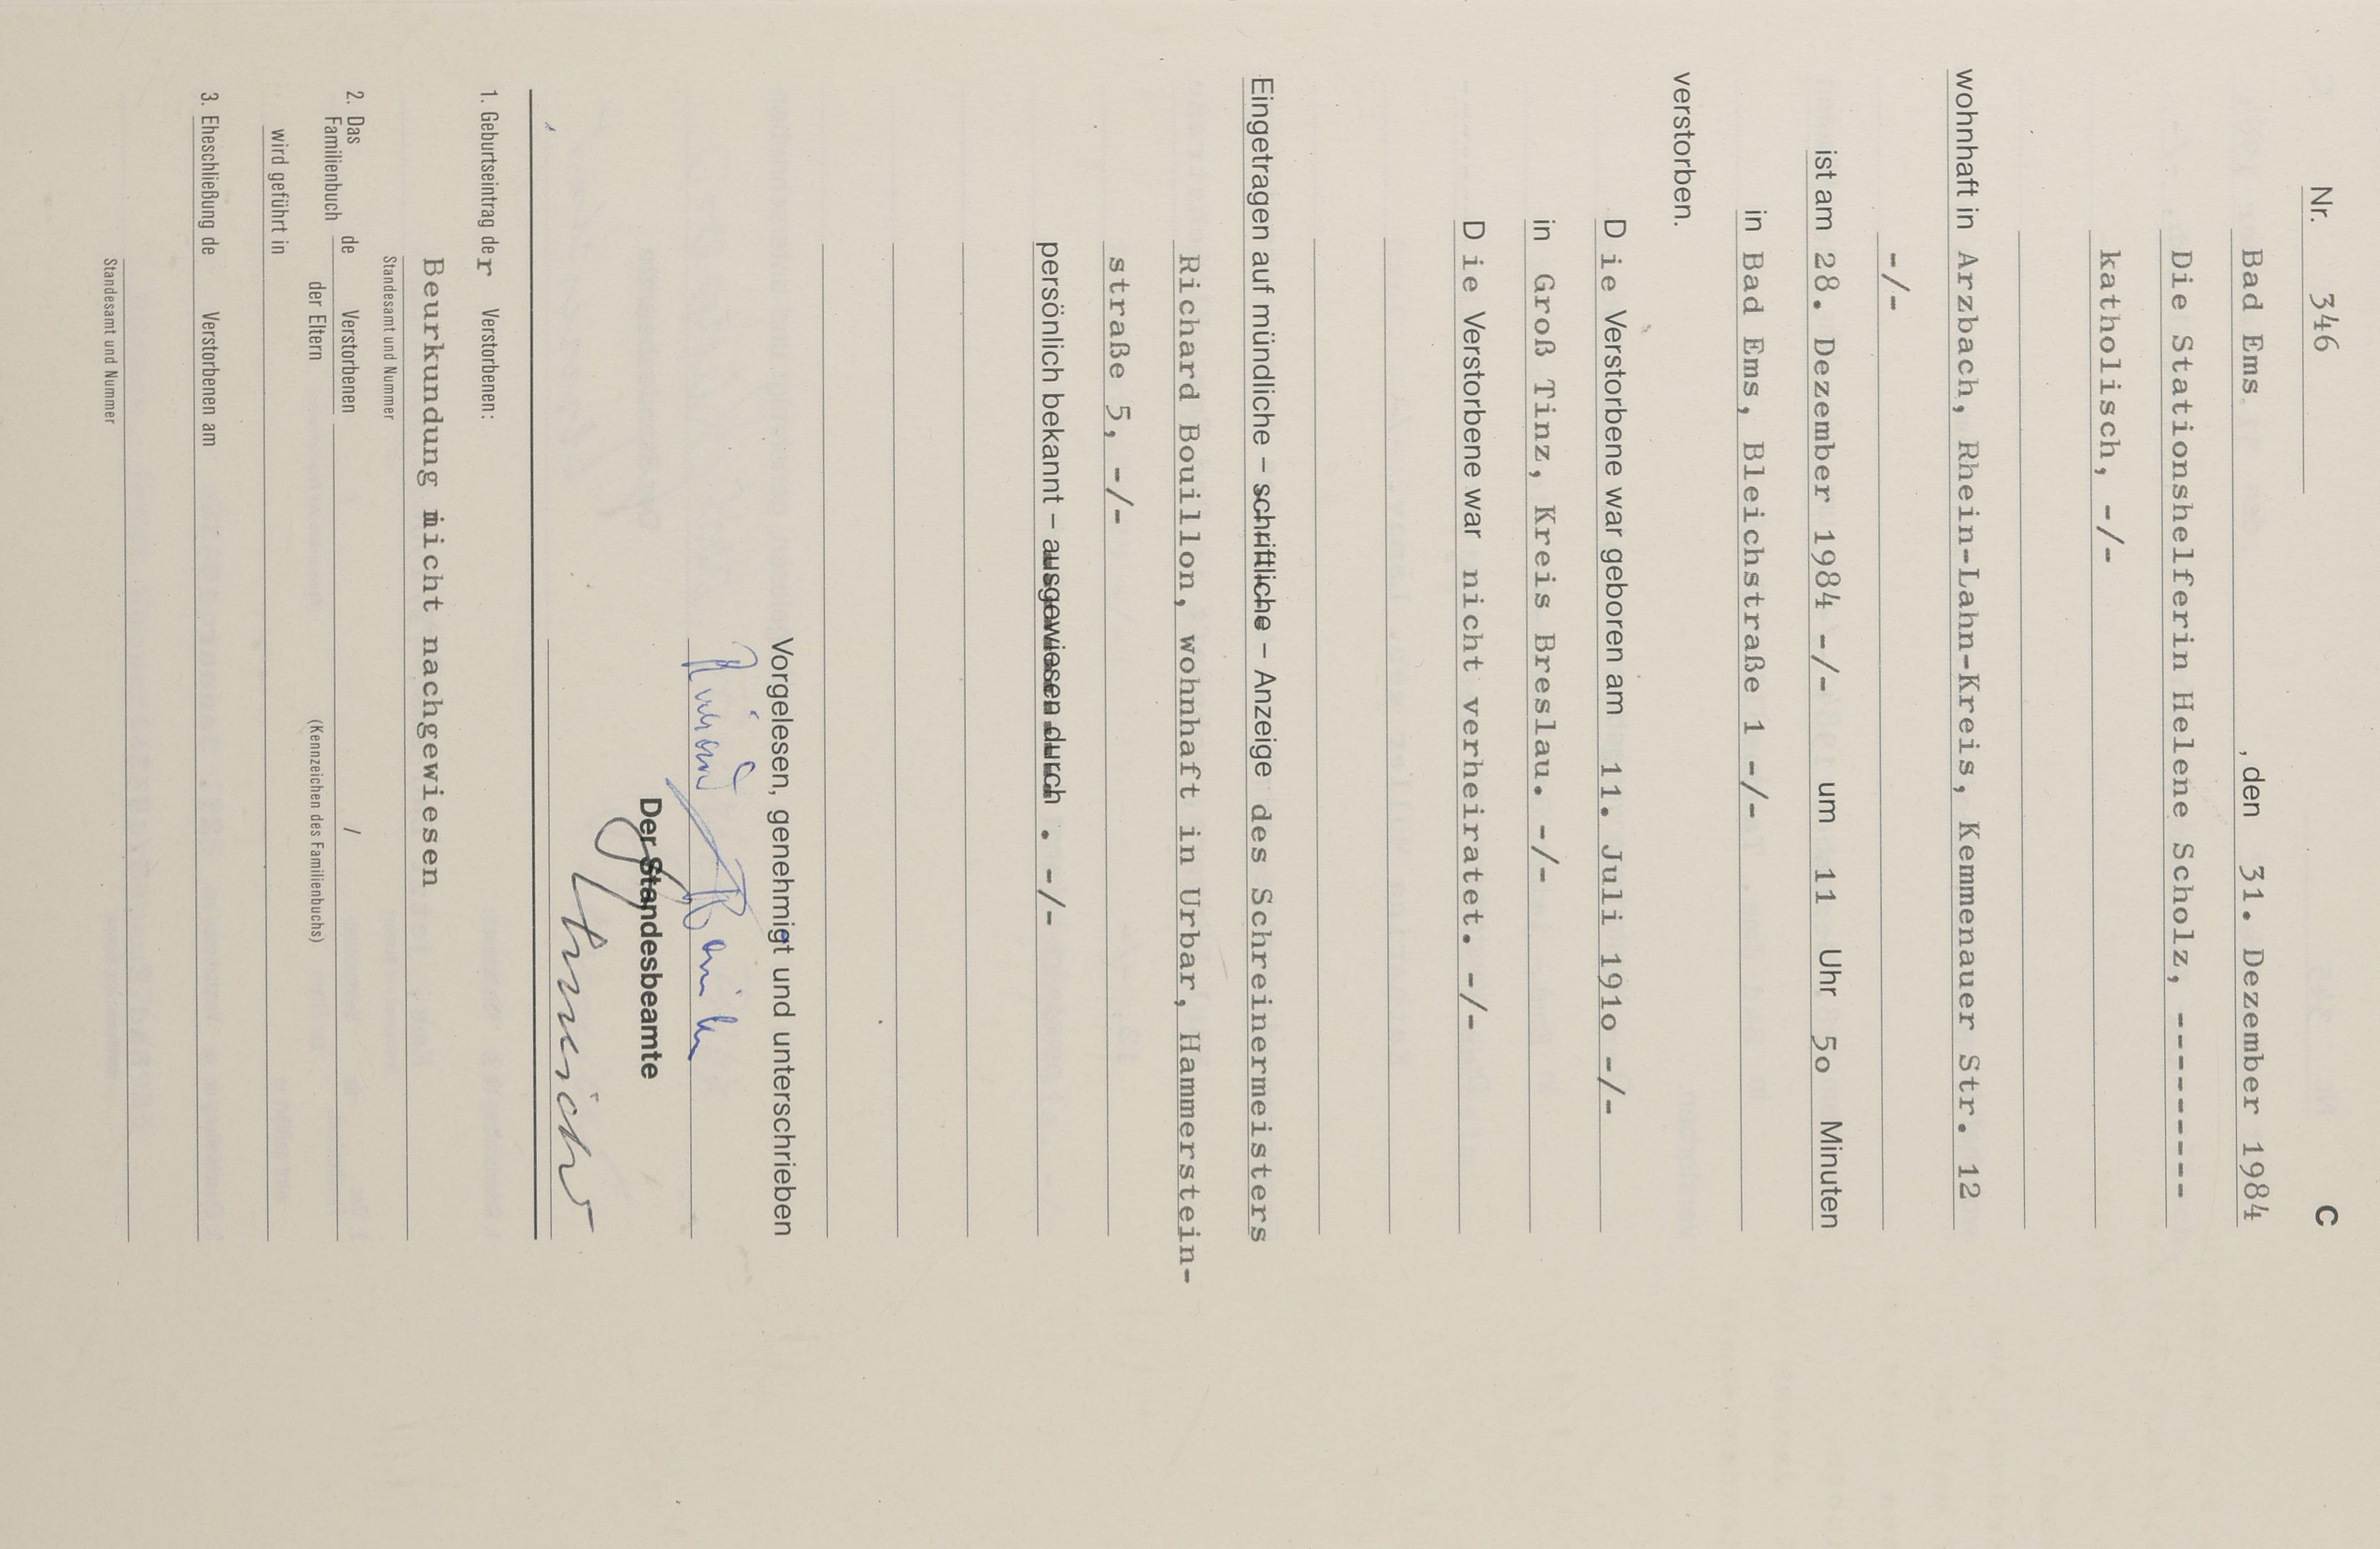 C
Nr. 346
Bad Ems, den 31. Dezember 1984
Die Stationshelferin Helene Scholz, --------
katholisch, -/-
wohnhaft in Arzbach, Rhein-Lahn-Kreis, Kemmenauer Str. 12
-/-
ist am 28. Dezember 1984 -/- um 11 Uhr 5o Minuten
in Bad Ems, Bleichstraße 1 -/-
verstorben.
Die Verstorbene war geboren am 11. Juli 191o -/-
in Groß Tinz, Kreis Breslau. -/-
Die Verstorbene war nicht verheiratet. -/-
Eingetragen auf mündliche – schriftliche – Anzeige des Schreinermeisters
Richard Bouillon, wohnhaft in Urbar, Hammerstein-
straße 5, -/-
persönlich bekannt – ausgewiesen durch . -/-
Vorgelesen, genehmigt und unterschrieben
Richard Bouillon
Der Standesbeamte
1. Geburtseintrag der Verstorbenen:
Beurkundung nicht nachgewiesen
Standesamt und Nummer
2. Das Familienbuch de Verstorbenen /
der Eltern (Kennzeichen des Familienbuchs)
wird geführt in
3. Eheschließung de Verstorbenen am
Standesamt und Nummer